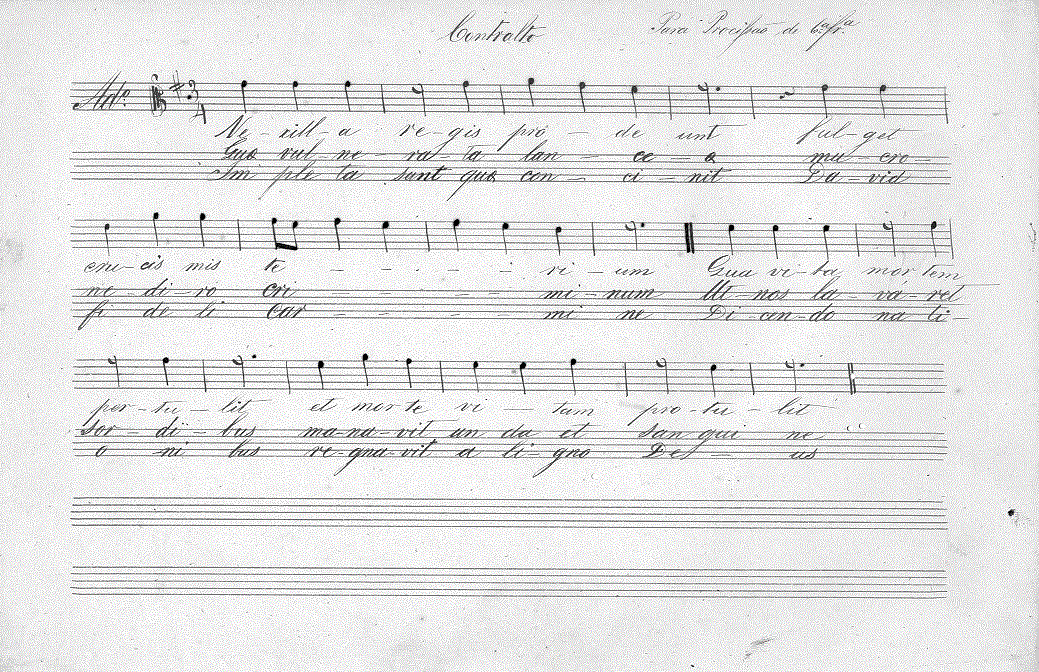 Contralto Para Procissão de 6ª frª
Adº 3/4
Ve - xill - a re - gis pro - de unt ful - get
Quo vul - ne - ra - ta lan - ce - a mu - cro -
Im ple ta sunt quo con - ci - nit Da - vid
cru - cis mis te - - - - - ri - um Qua vi - ta mor tem
ne - di - ro cri - - - - - mi - num Ut - nos la - va - ret
fi de li car - - - - mi ne Di - cen - do na ti -
per - tu - lit et mor te vi - tam pro - tu - lit
Sor - di - bus ma - na - vit un da et san gui ne
o ni bus re - gna - vit a li - gno De - us